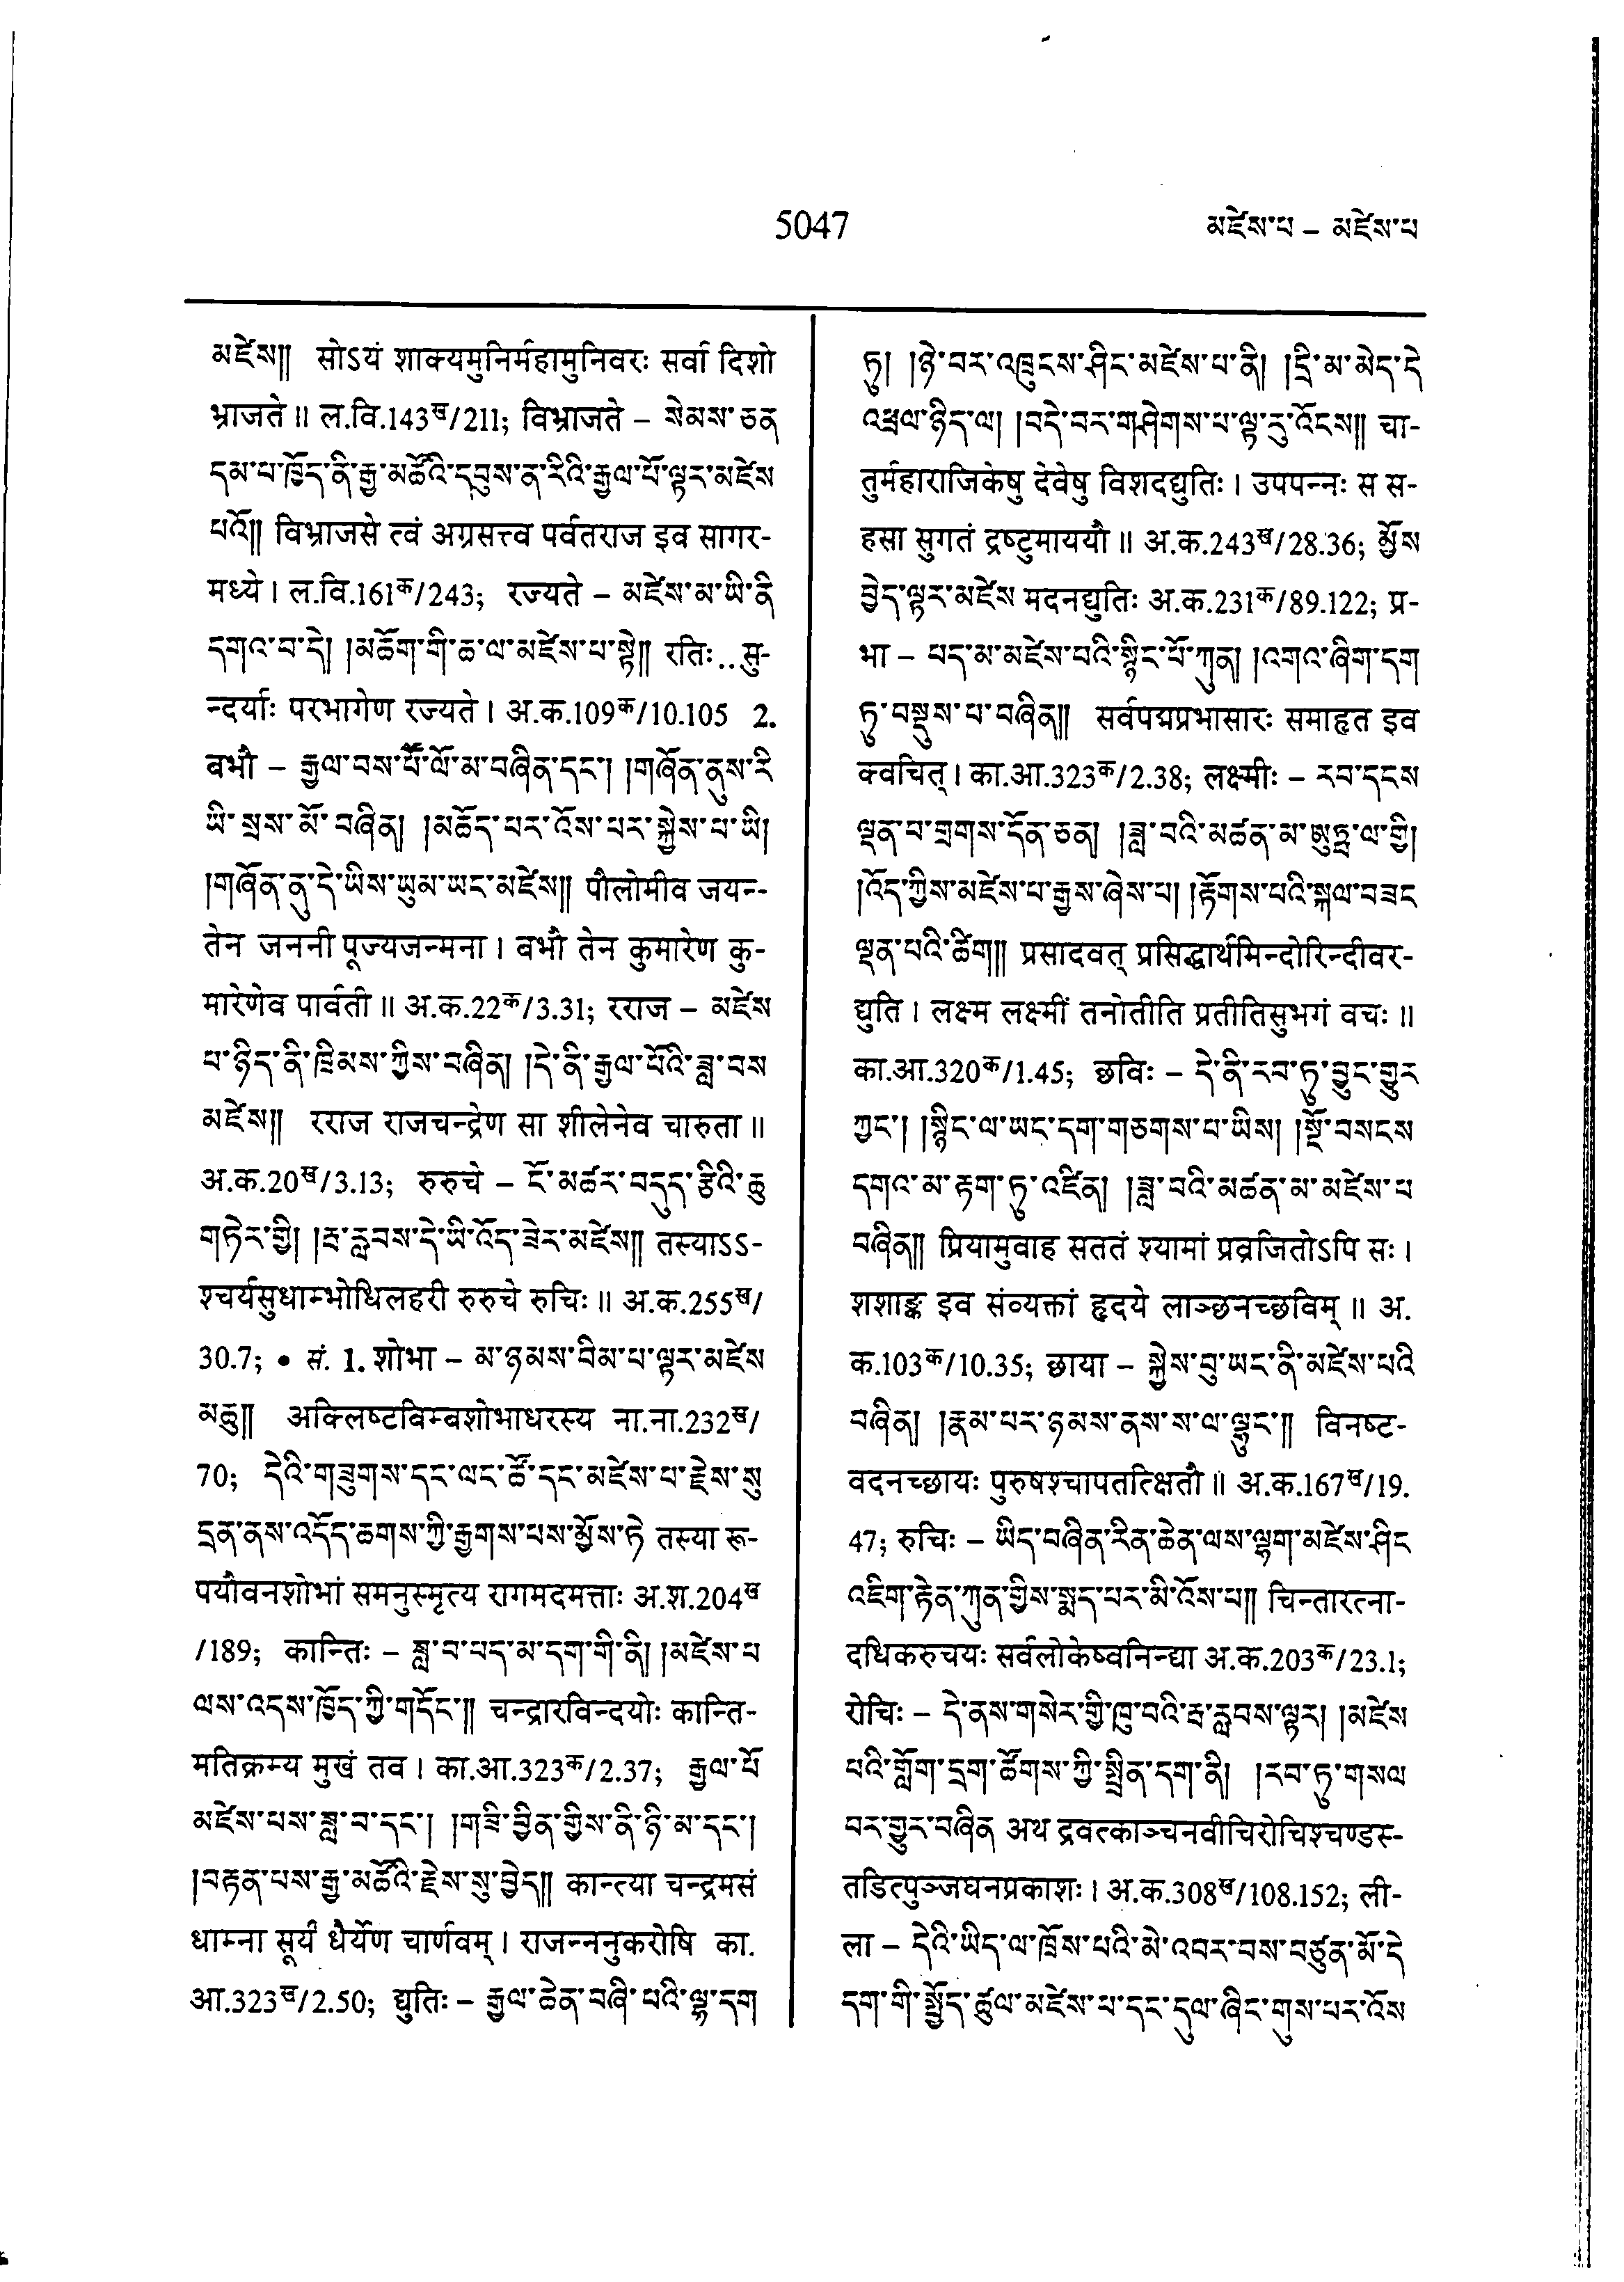 5047
མཛེས་པ – མཛེས་པ
མཛེས།། सोऽयं शाक्यमुनिर्महामुनिवरः सर्वा दिशो
भ्राजते ॥ ल.वि.143ख/211; विभ्राजते – སེམས་ཅན
དམ་པ་ཁྱོད་ནི་རྒྱ་མཚོའི་དབུས་ན་རིའི་རྒྱལ་པོ་ལྟར་མཛེས
པའོ།། विभ्राजसे त्वं अग्रसत्त्व पर्वतराज इव सागर-
मध्ये । ल.वि.161क/243; रज्यते – མཛེས་མ་ཡི་ནི
དགའ་བ་དེ། །མཆོག་གི་ཆ་ལ་མཛེས་པ་སྟེ།། रतिः..सु-
न्दर्याः परभागेण रज्यते । अ.क.109क/10.105 2.
बभौ – རྒྱལ་བས་པཽ་ལོ་མ་བཞིན་དང་། །གཞོན་ནུས་རི
ཡི་སྲས་མོ་བཞིན། །མཆོད་པར་འོས་པར་སྐྱེས་པ་ཡི།
།གཞོན་ནུ་དེ་ཡིས་ཡུམ་ཡང་མཛེས།། पौलोमीव जयन्-
तेन जननी पूज्यजन्मना । बभौ तेन कुमारेण कु-
मारेणेव पार्वती ॥ अ.क.22क/3.31; रराज – མཛེས
པ་ཉིད་ནི་ཁྲིམས་ཀྱིས་བཞིན། །དེ་ནི་རྒྱལ་པོའི་ཟླ་བས
མཛེས།། रराज राजचन्द्रेण सा शीलेनेव चारुता ॥
अ.क.20ख/3.13; रुरुचे – ངོ་མཚར་བདུད་རྩིའི་ཆུ
གཏེར་གྱི། །རྦ་རླབས་དེ་ཡི་འོད་ཟེར་མཛེས།། तस्याऽऽ-
श्चर्यसुधाम्भोधिलहरी रुरुचे रुचिः ॥ अ.क.255ख/
30.7; • सं. 1. शोभा – མ་ཉམས་བིམ་པ་ལྟར་མཛེས
མཆུ།། अक्लिष्टबिम्बशोभाधरस्य ना.ना.232ख/
70; དེའི་གཟུགས་དང་ལང་ཚོ་དང་མཛེས་པ་རྗེས་སུ
དྲན་ནས་འདོད་ཆགས་ཀྱི་རྒྱགས་པས་མྱོས་ཏེ तस्या रू-
पयौवनशोभां समनुस्मृत्य रागमदमत्ताः अ.श.204ख
/189; कान्तिः – ཟླ་བ་པད་མ་དག་གི་ནི། །མཛེས་པ
ལས་འདས་ཁྱོད་ཀྱི་གདོང་།། चन्द्रारविन्दयोः कान्ति-
मतिक्रम्य मुखं तव । का.आ.323क/2.37; རྒྱལ་པོ
མཛེས་པས་ཟླ་བ་དང་། །གཟི་བྱིན་གྱིས་ནི་ཉི་མ་དང་།
།བརྟན་པས་རྒྱ་མཚོའི་རྗེས་སུ་བྱེད།། कान्त्या चन्द्रमसं
धाम्ना सूर्यं धैर्येण चार्णवम् । राजन्ननुकरोषि का.
आ.323ख/2.50; द्युतिः – རྒྱལ་ཆེན་བཞི་པའི་ལྷ་དག
ཏུ། །ཉེ་བར་འཁྲུངས་ཤིང་མཛེས་པ་ནི། །དྲི་མ་མེད་དེ
འཕྲལ་ཉིད་ལ། །བདེ་བར་གཤེགས་པ་ལྟ་རུ་འོངས།། चा-
तुर्महाराजिकेषु देवेषु विशदद्युतिः । उपपन्नः स स-
हसा सुगतं द्रष्टुमाययौ ॥ अ.क.243ख/28.36; མྱོས
བྱེད་ལྟར་མཛེས मदनद्युतिः अ.क.231क/89.122; प्र-
भा – པད་མ་མཛེས་པའི་སྙིང་པོ་ཀུན། །འགའ་ཞིག་དག
ཏུ་བསྡུས་པ་བཞིན།། सर्वपद्मप्रभासारः समाहृत इव
क्वचित् । का.आ.323क/2.38; लक्ष्मीः – རབ་དངས
ལྡན་པ་གྲགས་དོན་ཅན། །ཟླ་བའི་མཚན་མ་ཨུཏྤལ་གྱི།
།འོད་ཀྱིས་མཛེས་པ་རྒྱས་ཞེས་པ། །རྟོགས་པའི་སྐལ་བཟང
ལྡན་པའི་ཚིག།། प्रसादवत् प्रसिद्धार्थमिन्दोरिन्दीवर-
द्युति । लक्ष्म लक्ष्मीं तनोतीति प्रतीतिसुभगं वचः ॥
का.आ.320क/1.45; छविः – དེ་ནི་རབ་ཏུ་བྱུང་གྱུར
ཀྱང་། །སྙིང་ལ་ཡང་དག་གཅགས་པ་ཡིས། །སྔོ་བསངས
དགའ་མ་རྟག་ཏུ་འཛིན། །ཟླ་བའི་མཚན་མ་མཛེས་པ
བཞིན།། प्रियामुवाह सततं श्यामां प्रव्रजितोऽपि सः ।
शशाङ्क इव संव्यक्तां हृदये लाञ्छनच्छविम् ॥ अ.
क.103क/10.35; छाया – སྐྱེས་བུ་ཡང་ནི་མཛེས་པའི
བཞིན། །རྣམ་པར་ཉམས་ནས་ས་ལ་ལྷུང་།། विनष्ट-
वदनच्छायः पुरुषश्चापतत्क्षितौ ॥ अ.क.167ख/19.
47; रुचिः – ཡིད་བཞིན་རིན་ཆེན་ལས་ལྷག་མཛེས་ཤིང
འཇིག་རྟེན་ཀུན་གྱིས་སྨད་པར་མི་འོས་པ།། चिन्तारत्ना-
दधिकरुचयः सर्वलोकेष्वनिन्द्या अ.क.203क/23.1;
रोचिः – དེ་ནས་གསེར་གྱི་ཁུ་བའི་རྦ་རླབས་ལྟར། །མཛེས
པའི་གློག་དྲག་ཚོགས་ཀྱི་སྤྲིན་དག་ནི། །རབ་ཏུ་གསལ
བར་གྱུར་བཞིན अथ द्रवत्काञ्चनवीचिरोचिश्चण्डस्-
तडित्पुञ्जघनप्रकाशः । अ.क.308ख/108.152; ली-
ला – དེའི་ཡིད་ལ་ཁྲོས་པའི་མེ་འབར་བས་བཙུན་མོ་དེ
དག་གི་སྤྱོད་ཚུལ་མཛེས་པ་དང་དུལ་ཞིང་གུས་པར་འོས